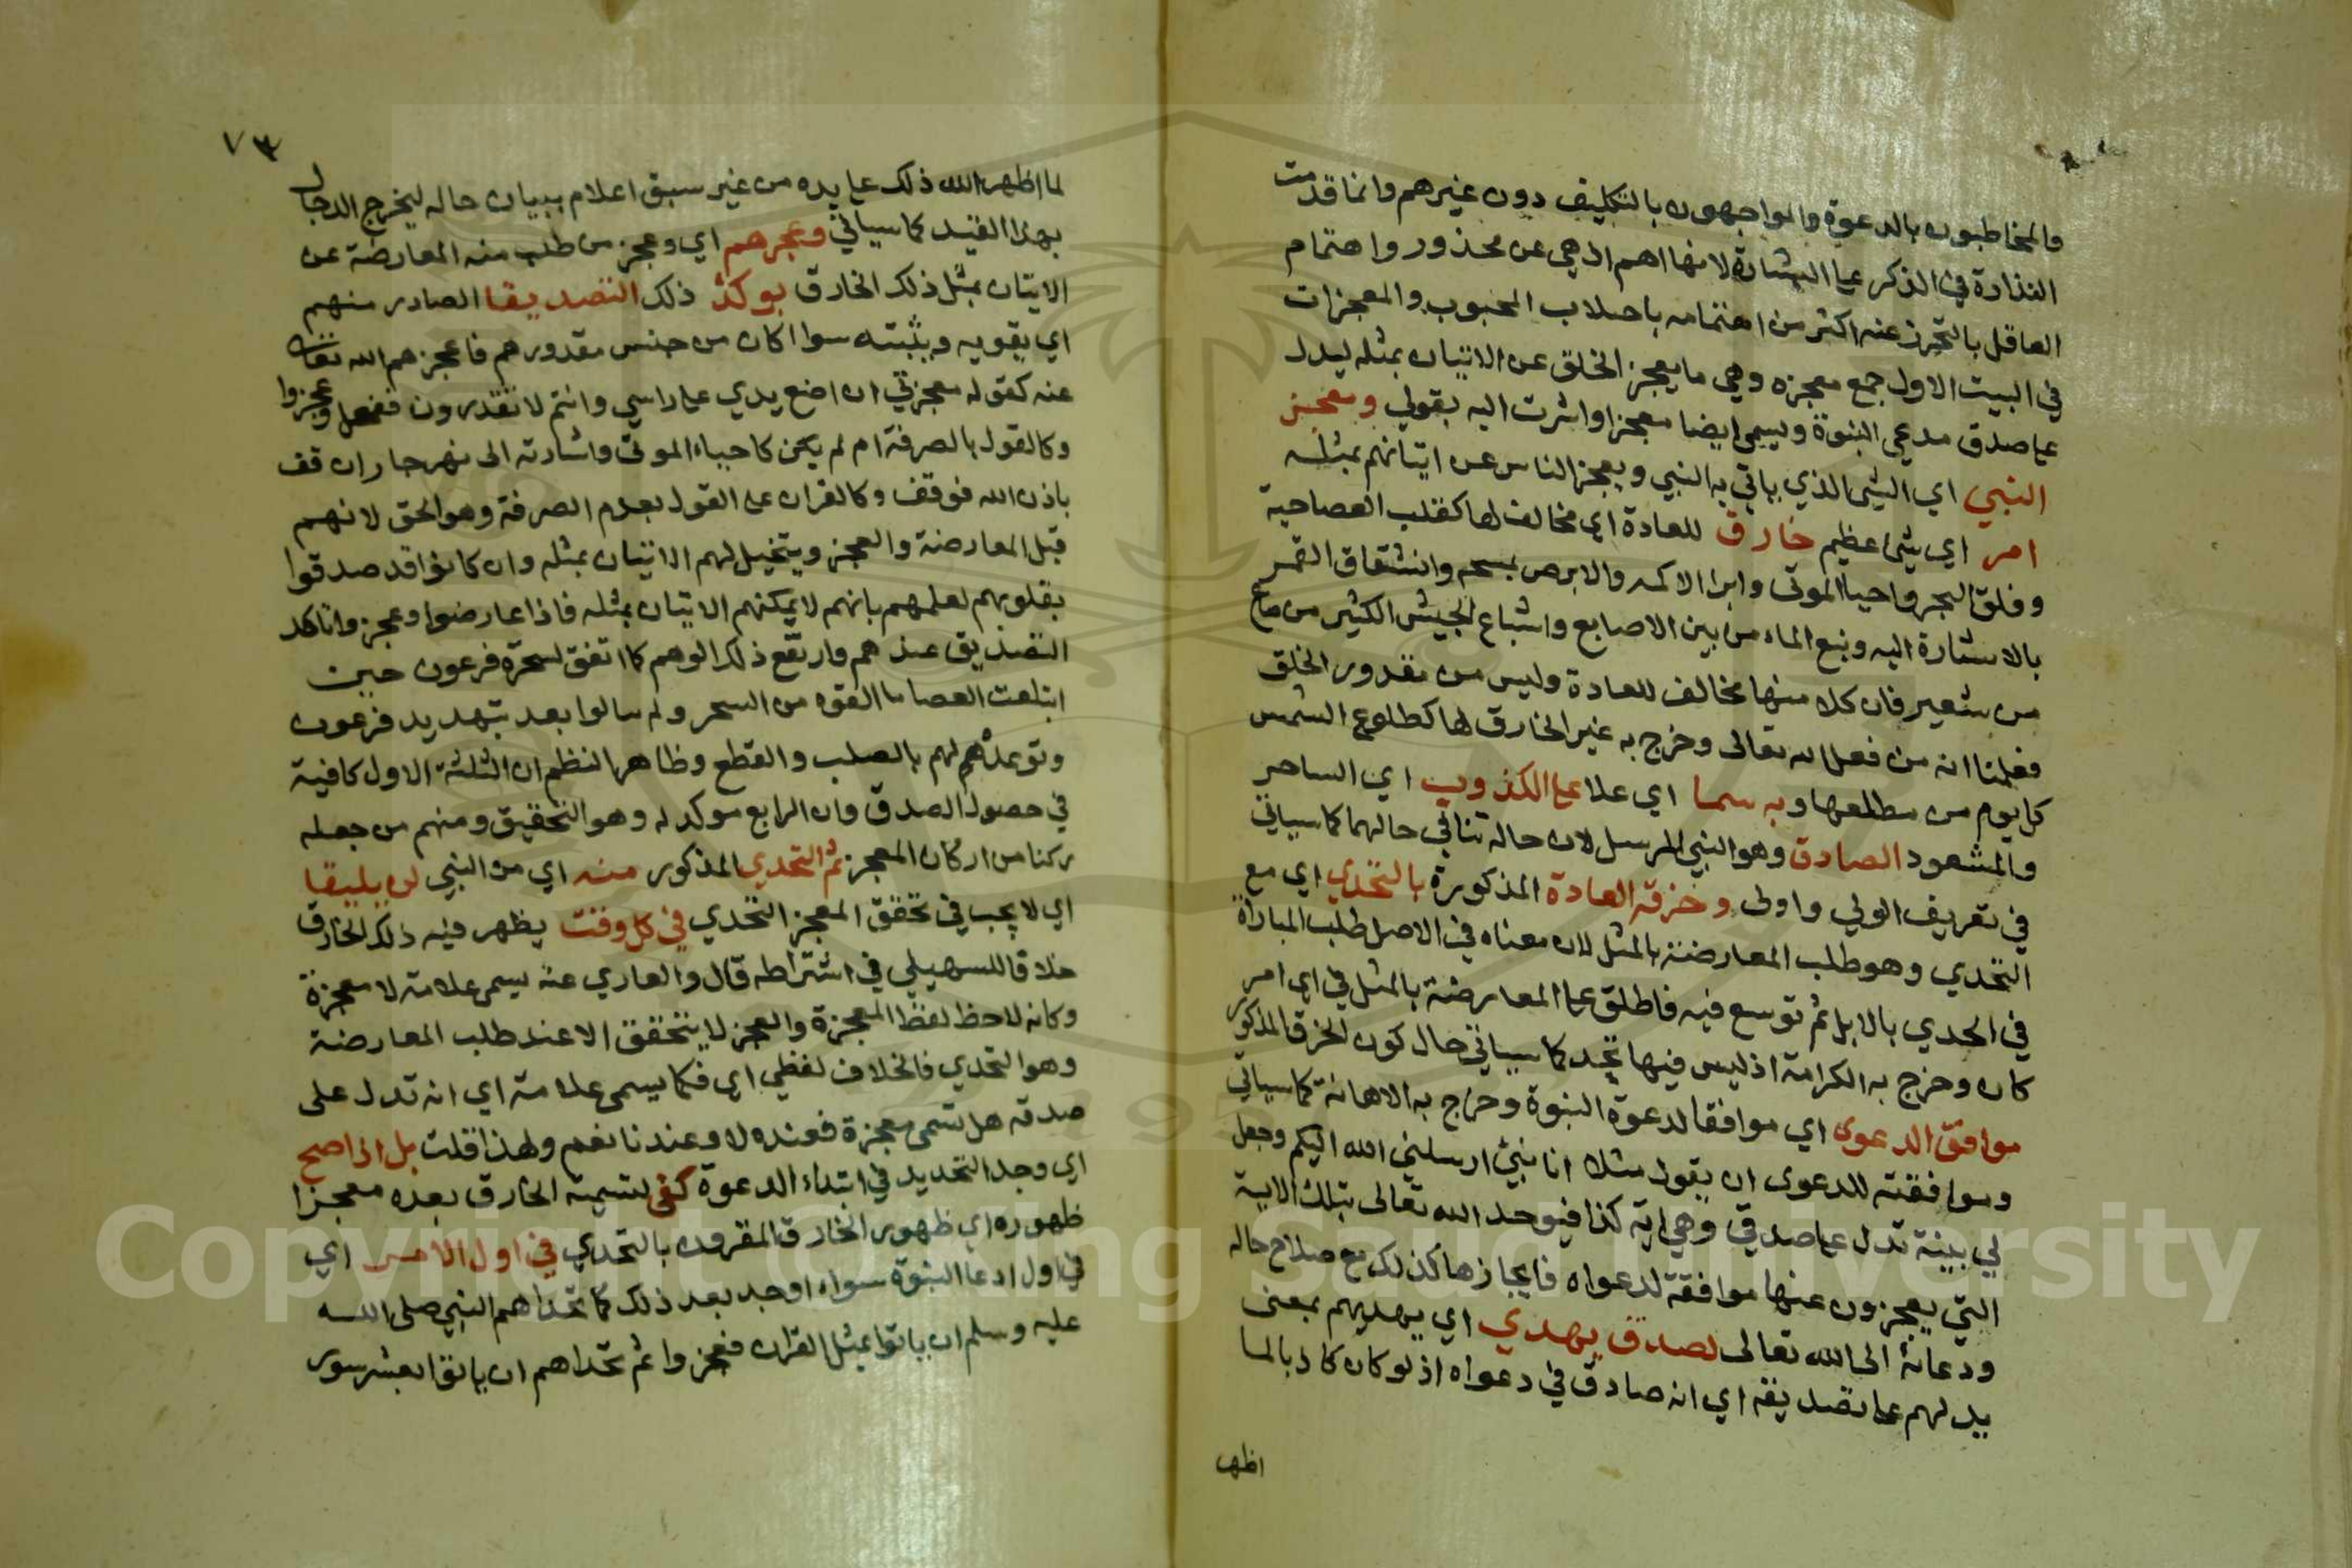 والمخاطبون بالدعوة والمواجهون بالتكليف دون غيرهم وانما قدمت
النذارة في الذكر على البشارة لانها اهم اذ هي عن محذور واهتمام
العاقل بالتحرز عنه اكثر من اهتمامه باجلاب المحبوب والمعجزات
في البيت الاول جمع معجزه وهي ما يعجز الخلق عن الاتيان بمثله ليدل
على صدق مدعي النبوة ويسمى ايضا معجزا واشرت اليه بقولي ومعجز
النبي اي الشي الذي ياتي به النبي ويعجز الناس عن اتيانهم بمثله
امر اي شي عظيم خارق للعادة اي مخالف لها كقلب العصا حية
وفلق البحر واحيا الموتى وابرا الاكمه والابرص بمسحه وانشقاق القمر
بالاشارة اليه ونبع الماء من بين الاصابع واشباع الجيش الكثير من صاع
من شعير فان كلا منها مخالف للعادة وليس من مقدور الخلق
فعلمنا انه من فعل الله تعالى وخرج به غير الخارق لها كطلوع الشمس
كل يوم من مطلعها وبه سما اي علا على الكذوب اي الساحر
والمشعود الصادق وهو النبي المرسل لان حاله تنافي حالهما كما سياتي
في تعريف الولي واولى وخرقه العادة المذكورة بالتحدي اي مع
التحدي وهو طلب المعارضة بالمثل لان معناه في الاصل طلب المباراة
في الحدي بالابل ثم توسع فيه فاطلق على المعارضة بالمثل في اي امر
كان وخرج به الكرامة اذ ليس فيها تحد كما سياتي حال كون الخرق المذكور
موافق الدعوى اي موافقا لدعوة النبوة وخرج به الاهانة كما سياتي
وموافقته للدعوى ان يقول مثلا انا نبي ارسلني الله اليكم وجعل
لي بينة تدل على صدقي وهي اية كذا فيوجد الله تعالى بتلك الاية
التي يعجزون عنها موافقة لدعواه فايجازها كذلك مع صلاح حاله
ودعائه الى الله تعالى لصدق يهدي اي يهديهم بمعنى
يدلهم على تصديقه اي انه صادق في دعواه اذ لو كان كاذبا لما
اظهر
٧٣
لما اظهر الله ذلك على يده من غير سبق اعلام ببيان حاله ليخرج الدجال
بهذا القيد كما سياتي وعجزهم اي وعجز من طلب منه المعارضة عن
الاتيان بمثل ذلك الخارق يوكد ذلك التصديقا الصادر منهم
اي يقويه ويثبته سوا اكان من جنس مقدورهم فاعجزهم الله تعالى
عنه كقوله معجزتي ان اضع يدي على راسي وانتم لا تقدرون ففعل وعجزوا
وكالقول بالصرفة ام لم يكن كاحياء الموتى واشارته الى نهر جار ان قف
باذن الله فوقف وكالقران على القول بعدم الصرفة وهو الحق لانهم
قبل المعارضة والعجز ويتخيل لهم الاتيان بمثله وان كانوا قد صدقوا
بقلوبهم لعلمهم بانهم لا يمكنهم الاتيان بمثله فاذا عارضوا وعجزوا تاكد
التصديق عندهم وارتفع ذلك الوهم كما اتفق لسحرة فرعون حين
ابتلعت العصا ما القوه من السحر ولم يبالوا بعد بتهديد فرعون
وتوعدهم لهم بالصلب والقطع وظاهر النظم ان الثلثة الاول كافية
في حصول الصدق وان الرابع موكد له وهو التحقيق ومنهم من جعله
ركنا من اركان المعجز ثم التحدي المذكور منه اي من النبي لن يليقا
اي لا يجب في تحقق المعجز التحدي في كل وقت يظهر فيه ذلك الخارق
خلافا للسهيلي في اشتراطه قال والعاري عنه يسمى علامة لا معجزة
وكانه لاحظ لفظ المعجزة والعجز لا يتحقق الا عند طلب المعارضة
وهو التحدي فالخلاف لفظي اي فكما يسمى علامة اي انه تدل على
صدقه هل تسمى معجزة فعنده لا وعندنا نعم ولهذا قلت بل الاصح
اي وجد التحديد في ابتداء الدعوة كفى لتسمية الخارق بعده معجزا
ظهوره اي ظهور الخارق المقرون بالتحدي في اول الامر اي
في اول ادعا النبوة سواء اوجد بعد ذلك كما تحداهم النبي صلى الله
عليه وسلم ان ياتوا بمثل القران فعجزوا ثم تحداهم ان ياتوا بعشر سور
Copyright © King Saud University